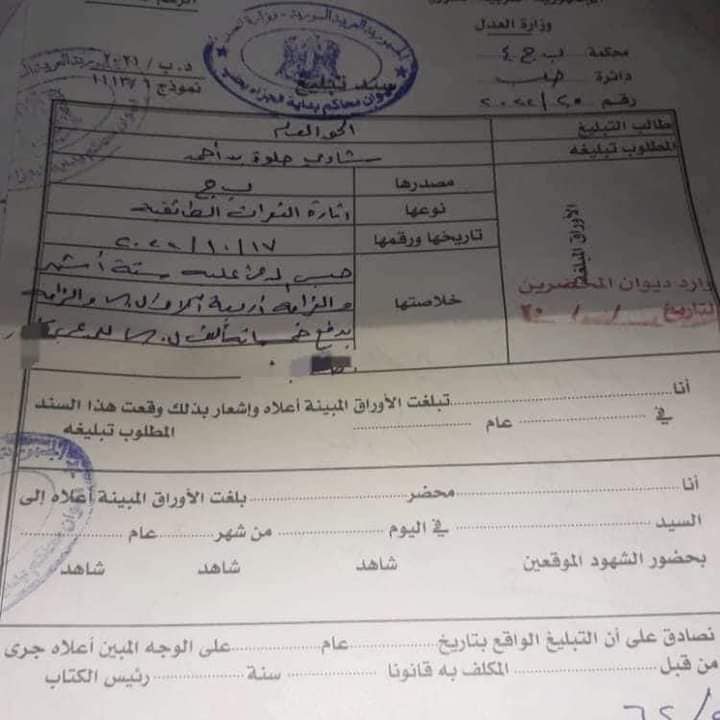 وزارة العدل
محكمة ب ج ٤
دائرة
رقم ٢٠ / ٢٠٢٢
د.ب / ٢٠٢١
نموذج ١١١٣٧٩
الجمهورية العربية السورية - وزارة العدل
ديوان محاكم بداية الجزاء بحمص
سند تبليغ
طالب التبليغ الحق العام
المطلوب تبليغه شادي حلوة بن أحمد
الأوراق المبلغة
مصدرها ب ج
نوعها اثارة النعرات الطائفية
تاريخها ورقمها ١٧ / ١٠ / ٢٠٢٢
خلاصتها حبس المدعى عليه ستة أشهر
والزامه أربعة آلاف ل.س والزامه
بدفع خمسمائة ألف ل.س للمدعي
وارد ديوان المحضرين
لتاريخ / / ٢٠
أنا تبلغت الأوراق المبينة أعلاه وإشعار بذلك وقعت هذا السند
في عام المطلوب تبليغه
أنا محضر بلغت الأوراق المبينة أعلاه إلى
السيد في اليوم من شهر عام
بحضور الشهود الموقعين شاهد شاهد شاهد
نصادق على أن التبليغ الواقع بتاريخ عام على الوجه المبين أعلاه جرى
من قبل المكلف به قانونا سنة رئيس الكتاب